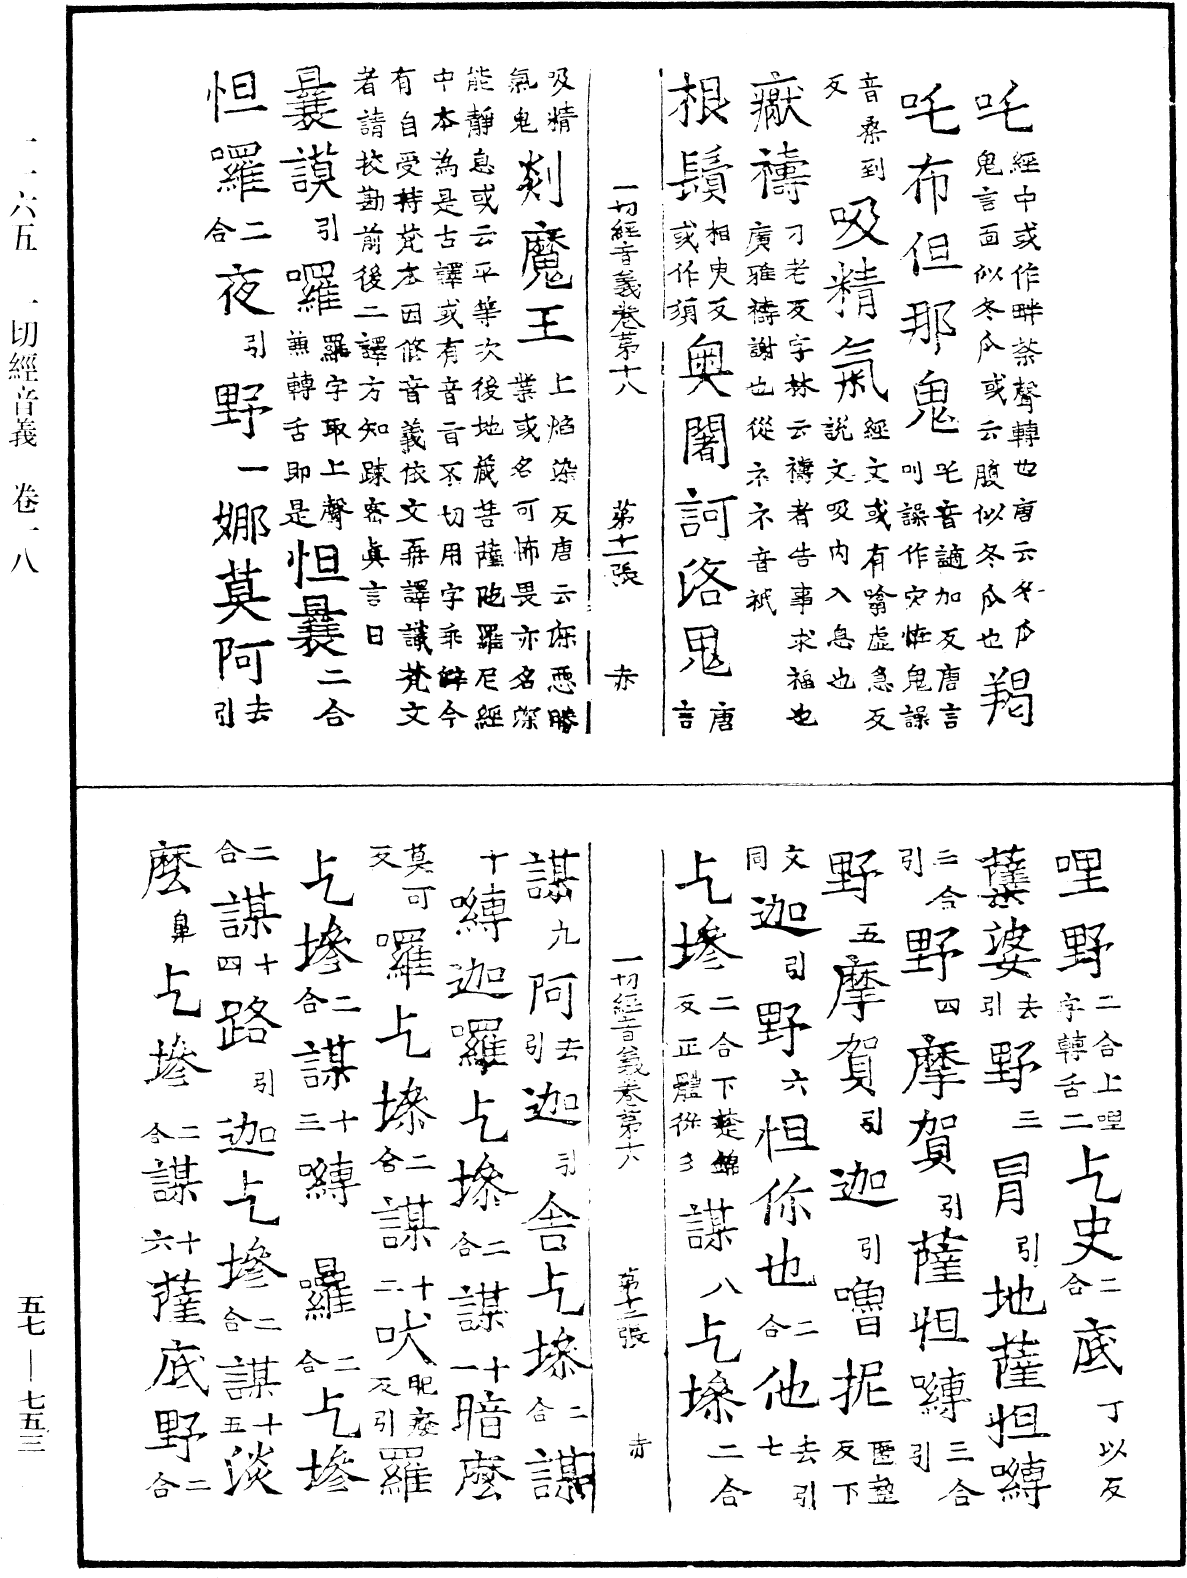 吒經中或作畔荼聲轉也唐云冬瓜鬼言面似冬瓜或云腹似冬瓜也羯
吒布但那鬼吒音讁加反唐言叫譟作灾怖鬼譟
音桑到反吸精氣經文或有噏虛急反說文吸內入息也
癥禱刁老反字林云禱者告事求福也廣雅禱謝也從示示音祇
根鬚相臾反或作須奧闍訶洛鬼唐言
一切經音義卷第十八 第十一張 赤
吸精氣鬼剡魔王上焰染反唐云深惡勝業或名可怖畏亦名深
能靜息或云平等次後地藏菩薩陀羅尼經中本為是古譯或有音旨不切用字乖僻今
有自受持梵本因修音義依文再譯識梵文者請挍勘前後二譯方知踈密真言曰
曩謨引囉羅字取上聲兼轉舌即是怛曩二合
怛囉二合夜引野一娜莫阿去引
哩野二合上哩字轉舌二乞史二合底丁以反
蘗婆去引野三冐引地薩怛嚩
三合引野四摩賀引薩怛嚩三合引
野五摩賀引迦引嚕抳匿整反下
文同迦引野六怛你也二合他去引七
乞墋二合下楚錦反正體從參謀八乞墋二合
一切經音義卷第十八 第十二張 赤
謀九阿去引迦引舍乞墋二合謀
十嚩迦囉乞墋二合謀十一暗麼
莫可反囉乞墋二合謀十二吠肥癈反引羅
乞墋二合謀十三嚩囉二合乞墋
二合謀十四路引迦乞墋二合謀十五淡
麼鼻乞墋二合謀十六薩底野二合
一一六五 一切經音義 卷一八
五七—七五三